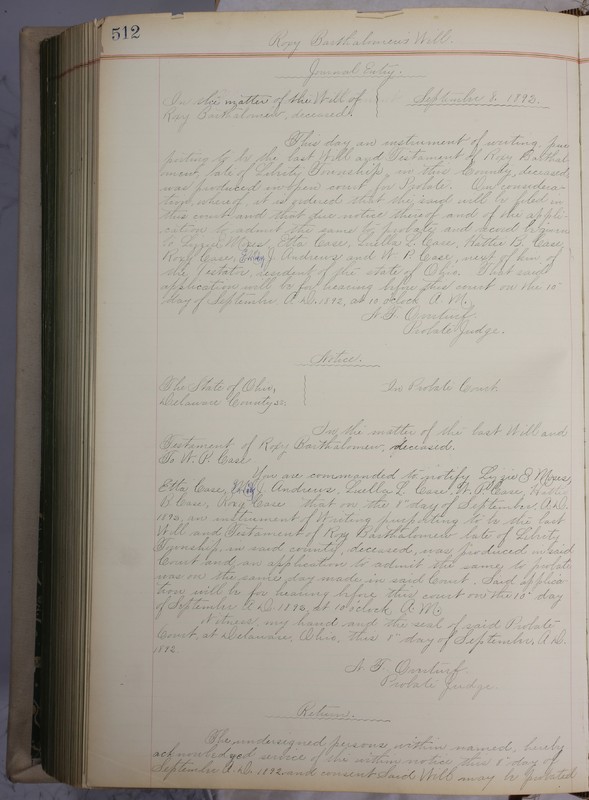 512
Roxy Bartholomew's Will.
Journal Entry.
In the matter of the Will of
Roxy Bartholomew, deceased.
September 8, 1892.
This day an instrument of writing, pur-
porting to be the last Will and Testament of Roxy Barthol-
omew, late of Liberty Township, in this County, deceased,
was produced in open court for Probate. On considera-
tion whereof it is ordered that the said will be filed in
this court and that due notice thereof and of the appli-
cation to admit the same to probate and record be given
to Lizzie Moses, Etta Case, Luella L. Case, Hattie B. Case,
Roxy Case, J. Andrews and W. P. Case, next of kin of
the testator, resident of the state of Ohio. That said
application will be for hearing before this court on the 10"
day of September A.D. 1892, at 10 o'clock A.M.
Probate Judge.
Notice.
The State of Ohio,
Delaware County ss.
In Probate Court.
In the matter of the last Will and
Testament of Roxy Bartholomew, deceased.
To W. P. Case
You are commanded to notify Lizzie E Moses,
Etta Case, J Andrews, Luella L Case, W. P. Case, Hattie
B Case, Roxy Case that on the 8" day of September, A.D.
1892, an instrument of Writing purporting to be the last
Will and Testament of Roxy Bartholomew late of Liberty
Township, in said county, deceased, was produced in said
Court and an application to admit the same to probate
was on the same day made in said Court. Said applica-
tion will be for hearing before this court on the 10" day
of September A.D. 1892, at 10 o'clock A.M.
Witness my hand and the seal of said Probate
Court, at Delaware, Ohio, this 8" day of September, A.D.
1892
Probate Judge
Return.
The undersigned persons within named, hereby
acknowledged service of the within notice this 8" day of
September A.D. 1892 and consent said Will may be probated